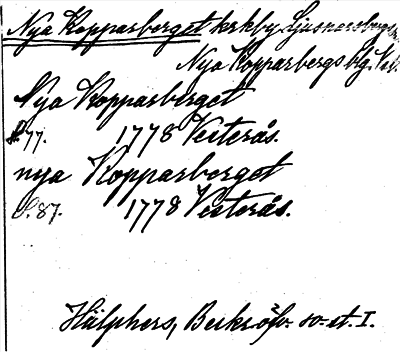 Nya Kopparberget krkby, Ljusnarsbergs
Nya Kopparbergs blg. Vr.
Nya Kopparberget
S. 77. 1778 Vesterås.
nya Kopparberget
S. 87. 1778 Vesterås.
Hülphers, Beskr. öfv. so-et. I.